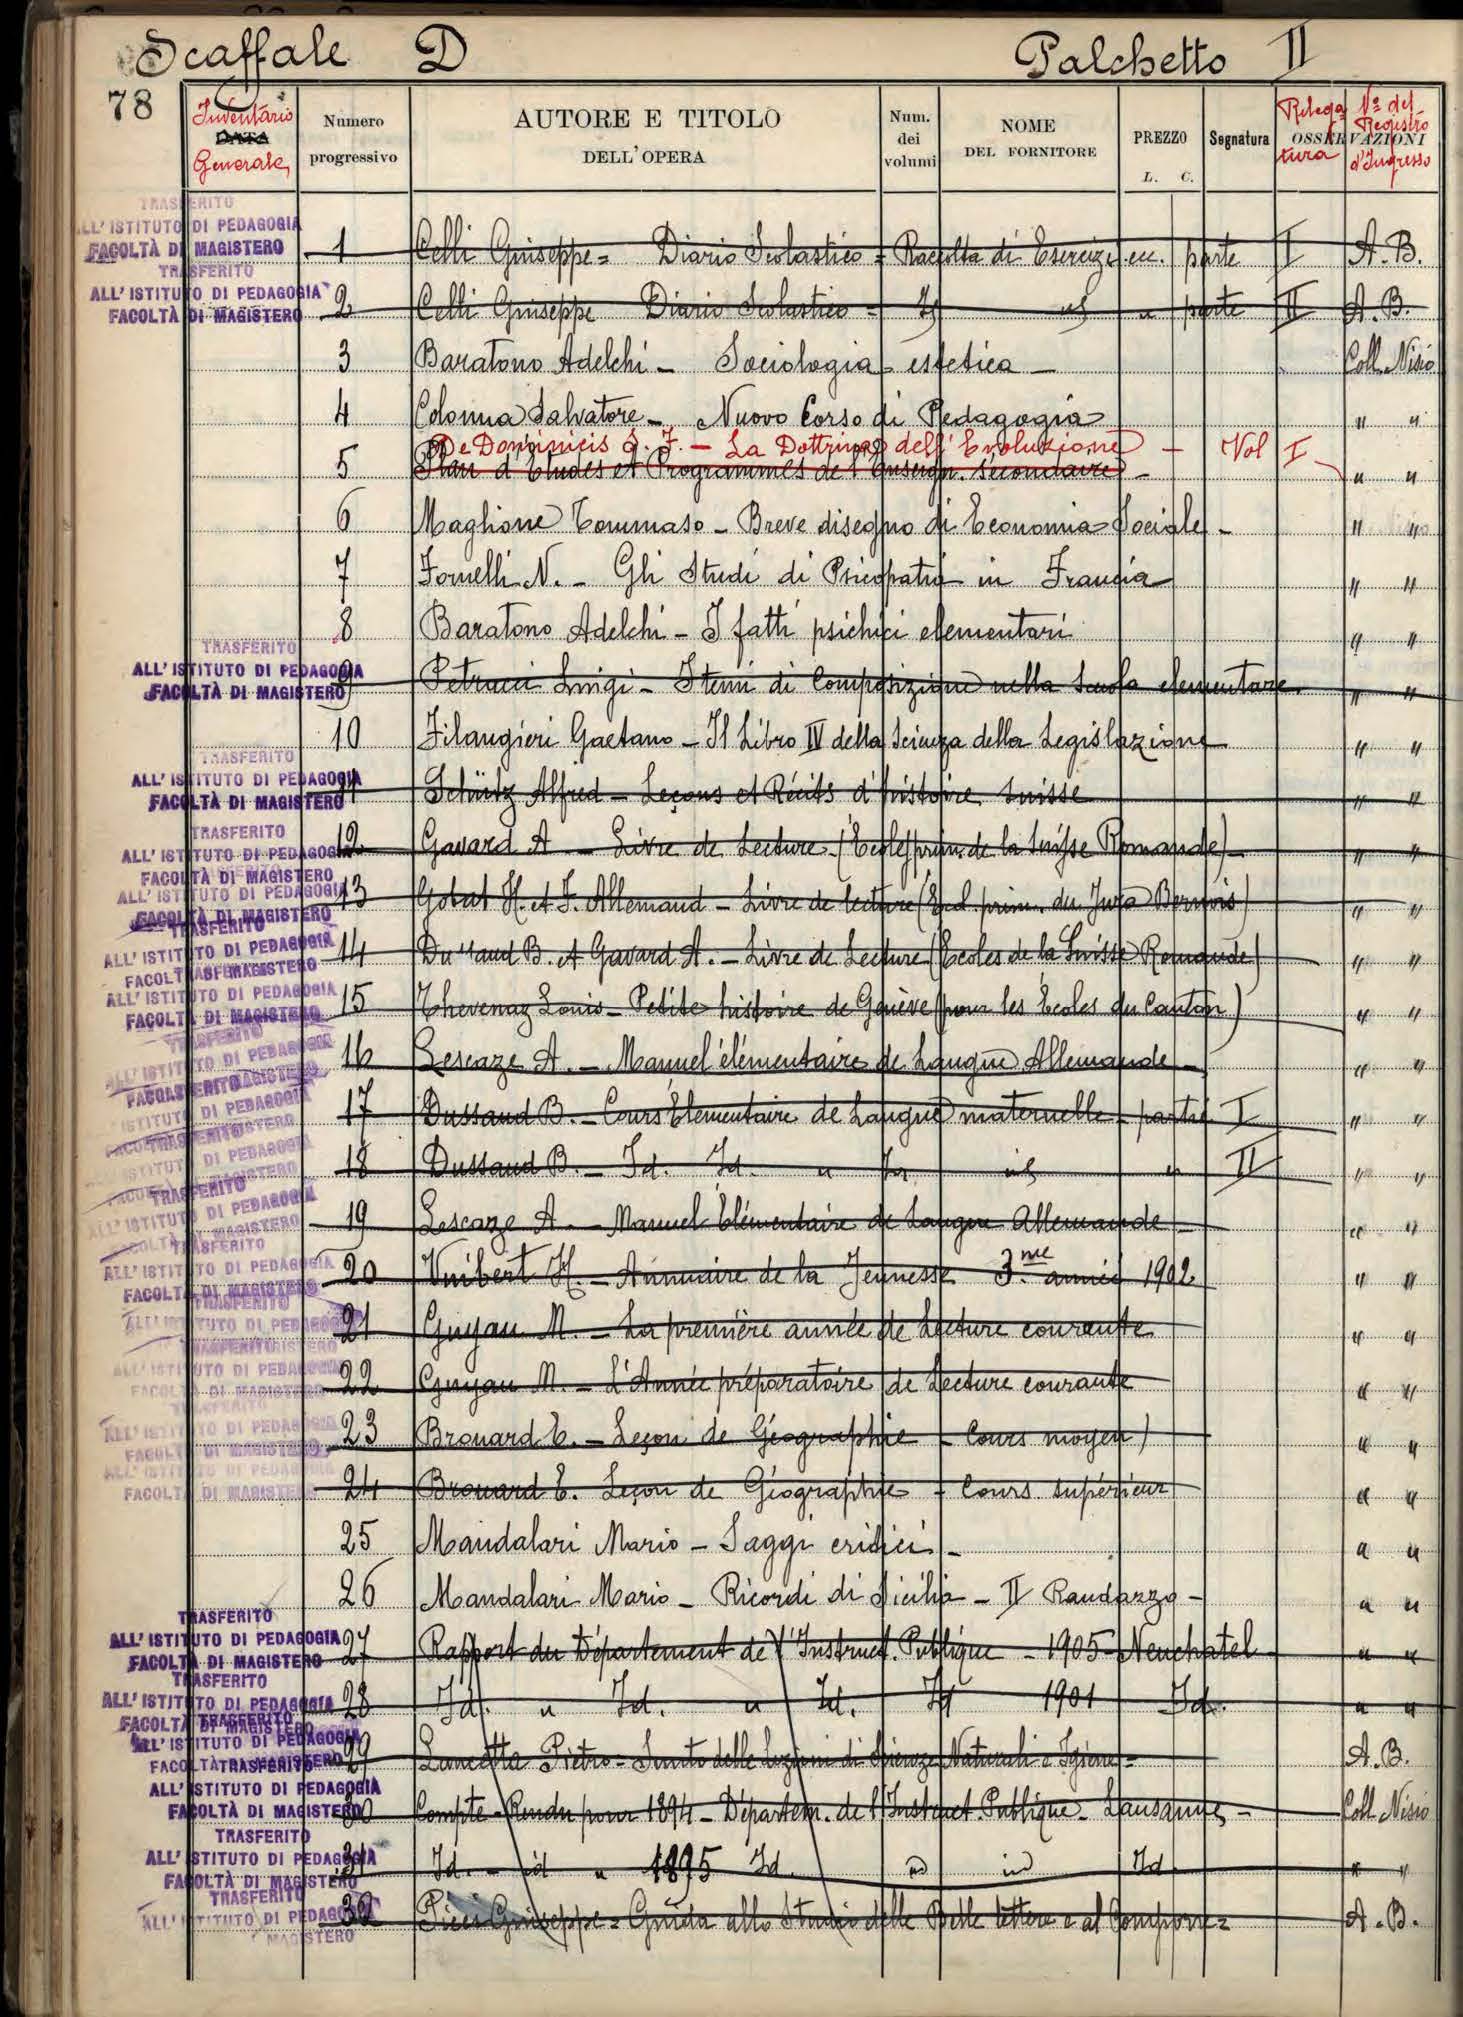 Scaffale D Palchetto II
78
Inventario DATA Generale
Numero progressivo
AUTORE E TITOLO DELL'OPERA
Num. dei volumi
NOME DEL FORNITORE
PREZZO L. C.
Segnatura
Rilegatura
OSSERVAZIONI
Nº del Registro d'Ingresso
TRASFERITO
ALL'ISTITUTO DI PEDAGOGIA
FACOLTÀ DI MAGISTERO
1 Celli Giuseppe = Diario Scolastico = Raccolta di Esercizi ecc. parte I A. B.
TRASFERITO
ALL'ISTITUTO DI PEDAGOGIA
FACOLTÀ DI MAGISTERO
2 Celli Giuseppe Diario Scolastico = Id id " parte II A. B.
3 Baratono Adelchi - Sociologia estetica - Coll. Nisio
4 Colonna Salvatore - Nuovo Corso di Pedagogia " "
De Dominicis S. F. - La Dottrina dell'Evoluzione - Vol I
5 Plan d'Etudes et Programmes de l'Enseign. secondaire - " "
6 Maglione Tommaso - Breve disegno di Economia Sociale - " "
7 Fornelli N. - Gli Studi di Psicopatia in Francia " "
8 Baratono Adelchi - I fatti psichici elementari " "
TRASFERITO
ALL'ISTITUTO DI PEDAGOGIA
FACOLTÀ DI MAGISTERO
9 Petrucci Luigi - I temi di Composizione nella Scuola elementare. " "
10 Filangieri Gaetano - Il Libro IV della Scienza della Legislazione " "
TRASFERITO
ALL'ISTITUTO DI PEDAGOGIA
FACOLTÀ DI MAGISTERO
11 Schütz Alfred - Leçons et Récits d'histoire suisse " "
TRASFERITO
ALL'ISTITUTO DI PEDAGOGIA
FACOLTÀ DI MAGISTERO
12 Gavard A - Livre de Lecture - (Ecoles prim. de la Suisse Romande) - " "
ALL'ISTITUTO DI PEDAGOGIA
FACOLTÀ DI MAGISTERO
13 Gobat H. et F. Allemand - Livre de lecture (Ecol. prim. du Jura Bernois) " "
TRASFERITO
ALL'ISTITUTO DI PEDAGOGIA
FACOLTÀ DI MAGISTERO
14 Dussaud B. et Gavard A. - Livre de Lecture (Ecoles de la Suisse Romande) " "
TRASFERITO
ALL'ISTITUTO DI PEDAGOGIA
FACOLTÀ DI MAGISTERO
15 Thevenaz Louis - Petite histoire de Genève (pour les Ecoles du Canton) " "
TRASFERITO
ALL'ISTITUTO DI PEDAGOGIA
FACOLTÀ DI MAGISTERO
16 Lescaze A. - Manuel élémentaire de Langue Allemande - " "
TRASFERITO
ALL'ISTITUTO DI PEDAGOGIA
FACOLTÀ DI MAGISTERO
17 Dussaud B. - Cours Elementaire de Langue maternelle - partie I " "
TRASFERITO
ALL'ISTITUTO DI PEDAGOGIA
FACOLTÀ DI MAGISTERO
18 Dussaud B. - Id. Id. " id " II " "
TRASFERITO
ALL'ISTITUTO DI PEDAGOGIA
FACOLTÀ DI MAGISTERO
19 Lescaze A. - Manuel Elémentaire de Langue Allemande - " "
TRASFERITO
ALL'ISTITUTO DI PEDAGOGIA
FACOLTÀ DI MAGISTERO
20 Vuibert H. - Annuaire de la Jeunesse 3.me année 1902 " "
TRASFERITO
ALL'ISTITUTO DI PEDAGOGIA
21 Guyau M. - La première année de Lecture courante " "
TRASFERITO
ALL'ISTITUTO DI PEDAGOGIA
FACOLTÀ DI MAGISTERO
22 Guyau M. - L'Année préparatoire de Lecture courante " "
TRASFERITO
ALL'ISTITUTO DI PEDAGOGIA
FACOLTÀ DI MAGISTERO
23 Brouard E. - Leçon de Géographie - Cours moyen) " "
ALL'ISTITUTO DI PEDAGOGIA
FACOLTÀ DI MAGISTERO
24 Brouard E. Leçon de Géographie - Cours supérieur " "
25 Mandalari Mario - Saggi critici - " "
26 Mandalari Mario - Ricordi di Sicilia - II Randazzo - " "
TRASFERITO
ALL'ISTITUTO DI PEDAGOGIA
FACOLTÀ DI MAGISTERO
27 Rapport du Département de l'Instruct. Publique - 1905 - Neuchatel " "
TRASFERITO
ALL'ISTITUTO DI PEDAGOGIA
FACOLTÀ DI MAGISTERO
28 Id. " Id. " Id. Id 1901 Id. " "
TRASFERITO
ALL'ISTITUTO DI PEDAGOGIA
FACOLTÀ DI MAGISTERO
29 Lancetta Pietro = Sunto delle Lezioni di Scienze Naturali e Igiene = A. B.
TRASFERITO
ALL'ISTITUTO DI PEDAGOGIA
FACOLTÀ DI MAGISTERO
30 Compte-Rendu pour 1894 - Départem. de l'Instruct. Publique - Lausanne - Coll. Nisio
TRASFERITO
ALL'ISTITUTO DI PEDAGOGIA
FACOLTÀ DI MAGISTERO
31 Id. - id " 1895 Id. " id Id. " "
TRASFERITO
ALL'ISTITUTO DI PEDAGOGIA
MAGISTERO
32 Picci Giuseppe = Guida allo Studio delle Belle lettere e al Compone= A. B.